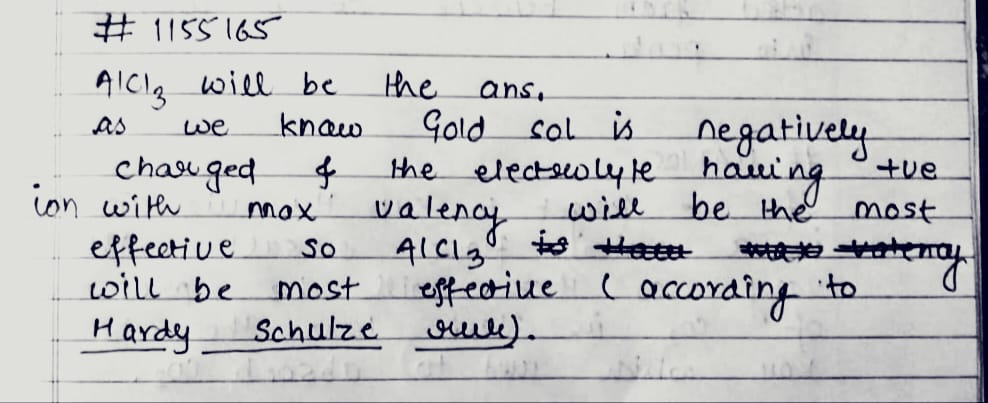 # 1155165
AlCl3 will be the ans.
as we know Gold sol is negatively
charged & the electrolyte having +ve
ion with max valency will be the most
effective so AlCl3 is have max valency
will be most effective (according to
Hardy Schulze rule).